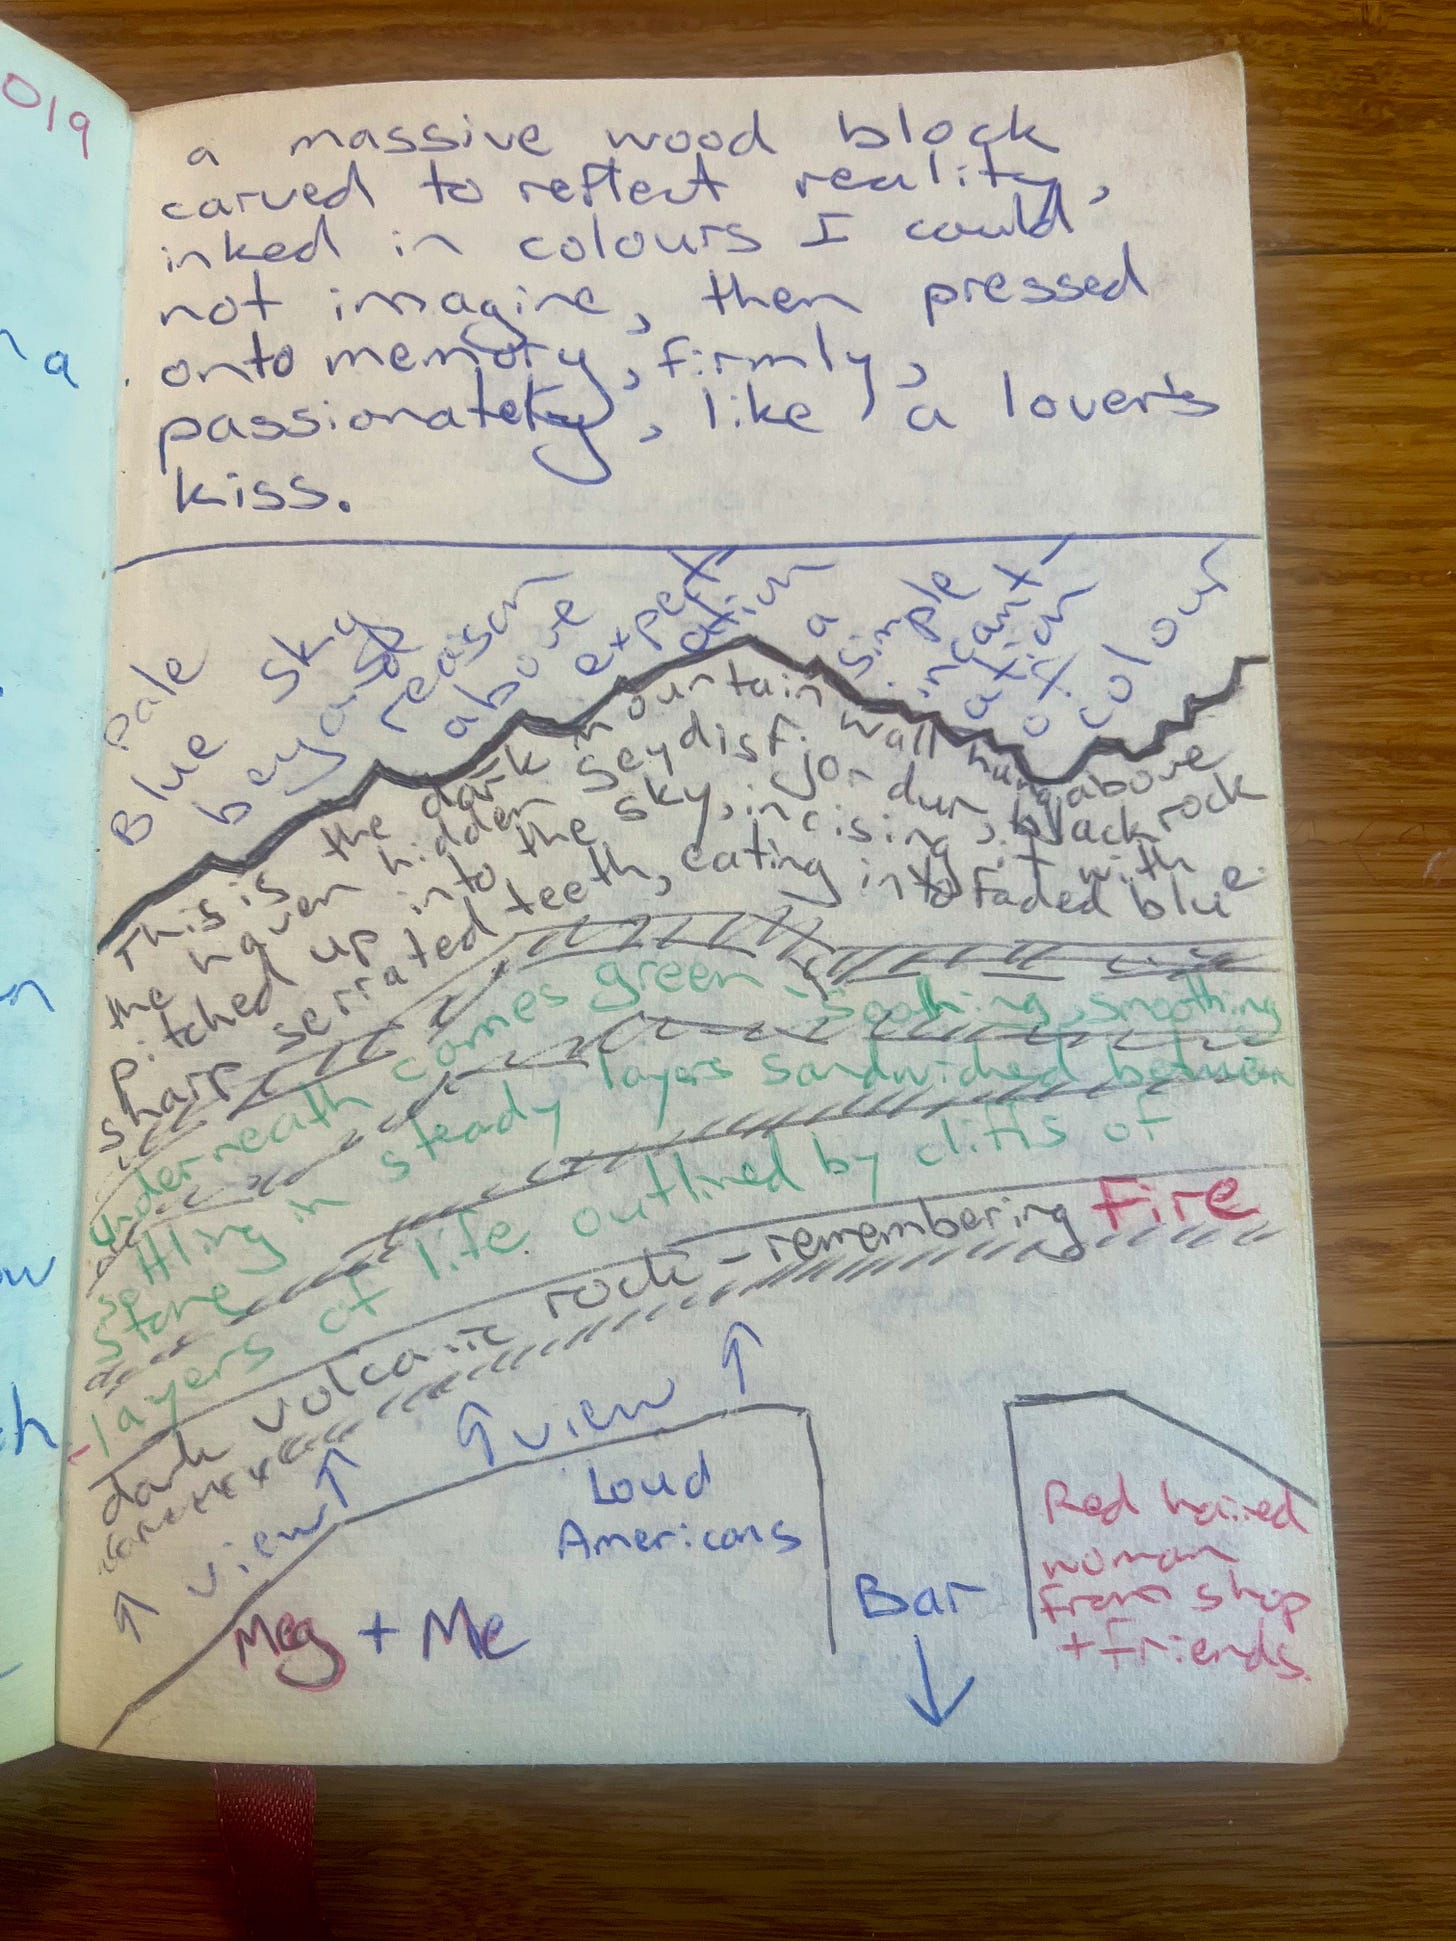 019
a massive wood block
carved to reflect reality,
inked in colours I could
not imagine, then pressed
onto memory, firmly,
passionately, like a lover's
kiss.
a
n
w
h
Pale
Blue sky
beyond
reason
above
expect
ation
a
simple
incant
ation
of
colour
This is the dark mountain wall hung above
the haven hidden Seydisfjordur, black rock
pitched up into the sky, incising it with
sharp serrated teeth, eating into faded blue.
underneath comes green - soothing, smoothing
settling in steady layers sandwiched between
stone
- layers of life outlined by cliffs of
dark volcanic rock - remembering Fire
view
view
Loud
Americans
Meg + Me
Bar
Red haired
woman
from shop
+ friends.